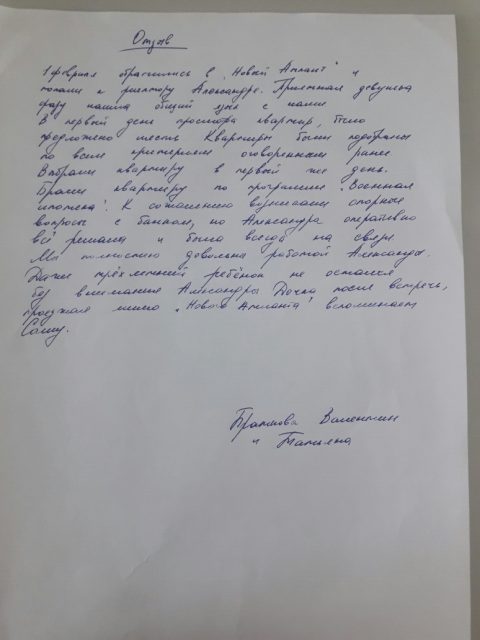 Отзыв
1 февраля обратились в "Новый Атлант" и
попали к риелтору Александре. Приятная девушка
сразу нашла общий язык с нами
В первый день просмотра квартир, было
предложено шесть. Квартиры были подобраны
по всем критериям оговоренным ранее
Выбрали квартиру в первый же день.
Брали квартиру по программе "Военная
ипотека". К сожалению возникали спорные
вопросы с банком, но Александра оперативно
всё решала и была всегда на связи.
Мы полностью довольны работой Александры.
Даже трёхлетний ребёнок не остался
без внимания Александры Дочка после встречь,
проезжая мимо "Нового Атланта" вспоминает
Сашу.
Валентин
и Татьяна